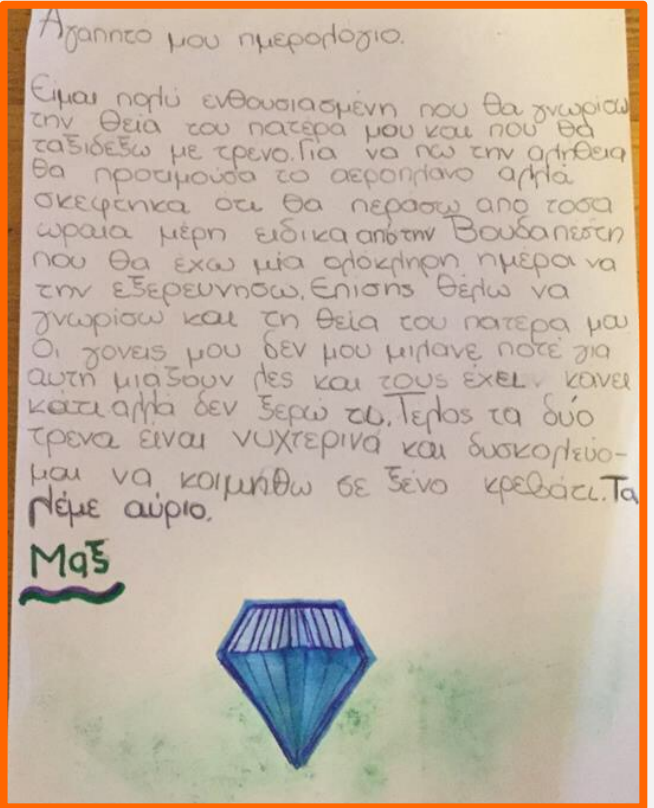 Αγαπητο μου ημερολόγιο.
Ειμαι πολύ ενθουσιασμένη που θα γνωρίσω
την θεία του πατέρα μου και που θα
ταξιδεξω με τρενο. Για να πω την αλήθεια
θα προτιμούσα το αεροπλάνο αλλά
σκεφτηκα οτι θα περασω απο τοσα
ωραια μέρη ειδικα από την Βουδαπεστη
που θα έχω μία ολόκληρη ημέρα να
την εξερευνησω. Επισης θέλω να
γνωρίσω και τη θεία του πατερα μου
Οι γονεις μου δεν μου μιλανε ποτέ για
αυτη μιαξουν λες και τους έχει κανει
κάτι αλλά δεν ξερω τι. Τελος τα δυό
τρενα ειναι νυχτερινά και δυσκολεύο-
μαι να κοιμηθω σε ξένο κρεβάτι. Τα
λέμε αύριο.
Μαξ